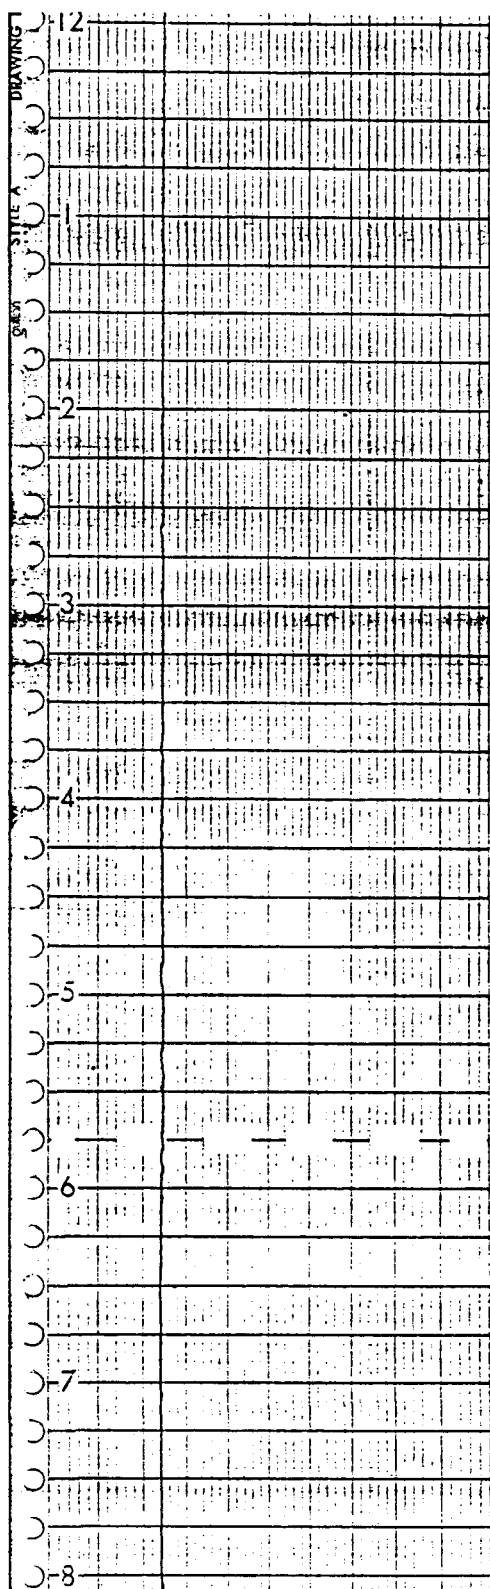 12
DRAWING
STYLE A
1
2
3
4
5
6
7
8